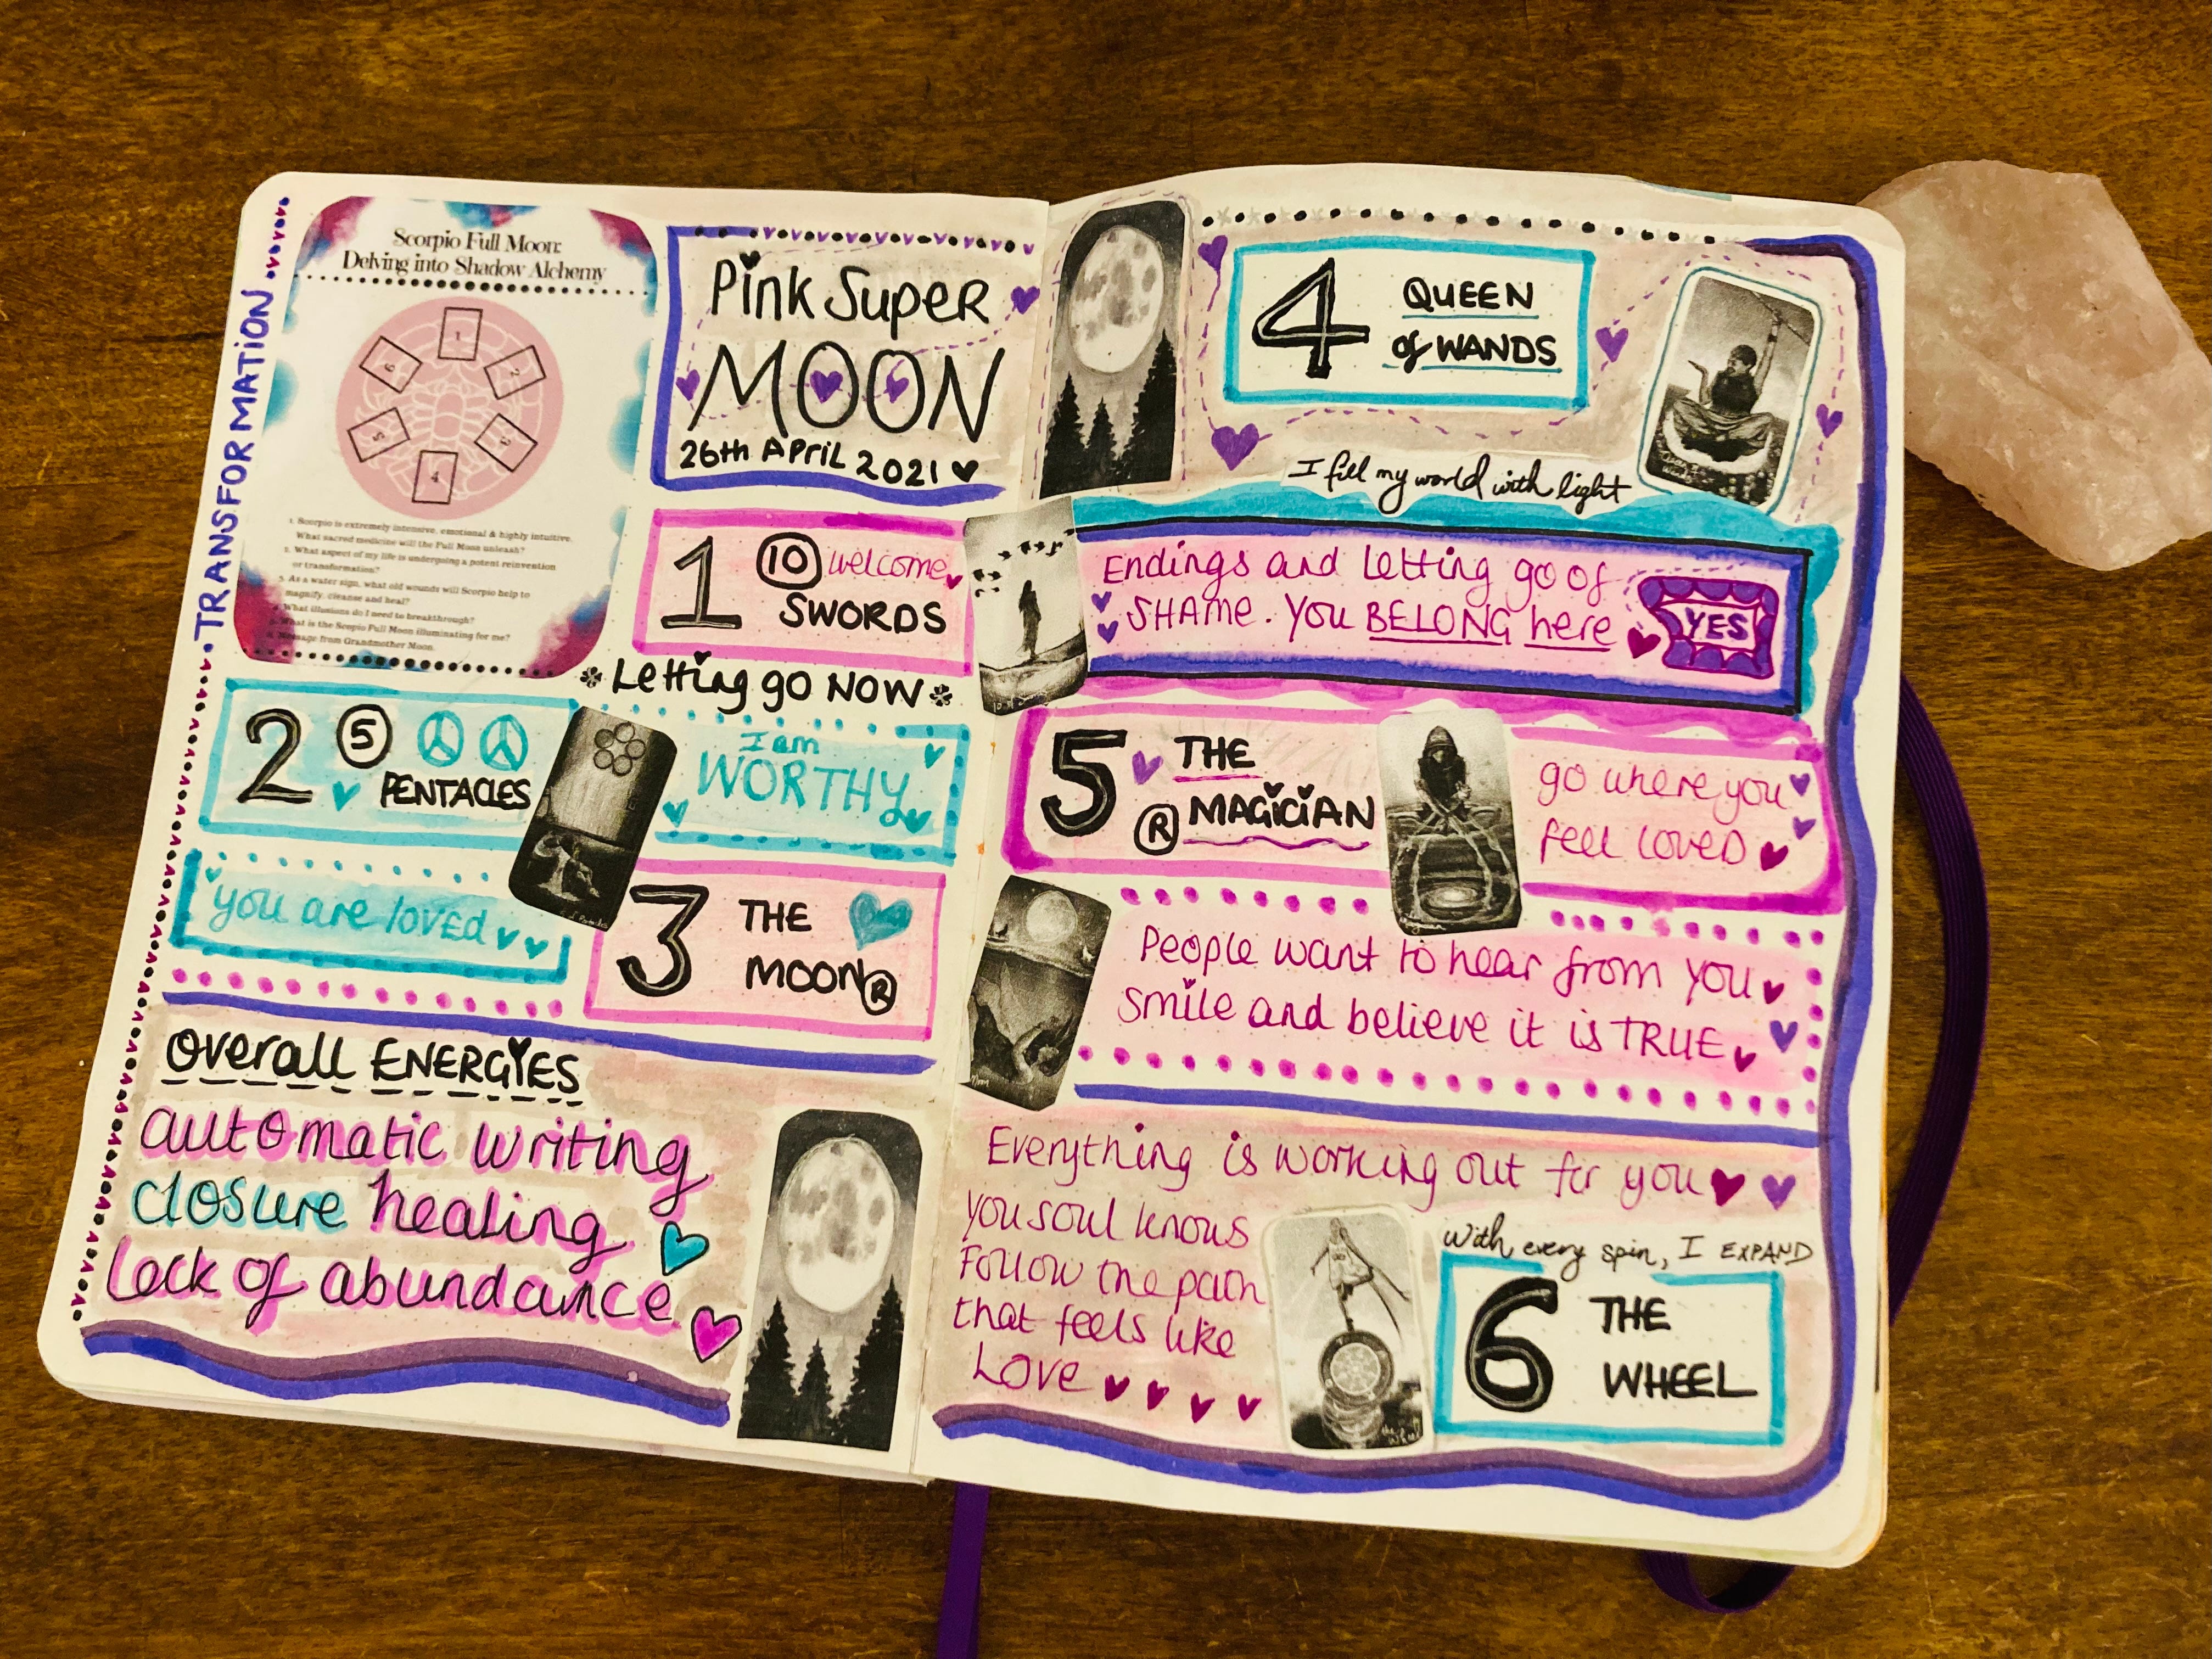 TRANSFORMATION
Scorpio Full Moon:
Delving into Shadow Alchemy
1
2
3
4
5
6
1. Scorpio is extremely intensive, emotional & highly intuitive.
What sacred medicine will the Full Moon unleash?
2. What aspect of my life is undergoing a potent reinvention
or transformation?
3. As a water sign, what old wounds will Scorpio help to
magnify, cleanse and heal?
4. What illusions do I need to breakthrough?
5. What is the Scopio Full Moon illuminating for me?
6. Message from Grandmother Moon.
Pink Super
MOON
26th April 2021
1 10 welcome
SWORDS
Letting go NOW
2 5
PENTACLES
I am
WORTHY
you are loved
3 THE
MOON R
Overall ENERGIES
automatic writing
closure healing
lack of abundance
4 QUEEN
of WANDS
I fill my world with light
Endings and letting go of
SHAME. You BELONG here
YES
5 THE
R MAGICIAN
go where you
feel loved
People want to hear from you
smile and believe it is TRUE
Moon
Everything is working out for you
you soul knows
Follow the path
that feels like
LOVE
With every spin, I EXPAND
6 THE
WHEEL
the Wheel